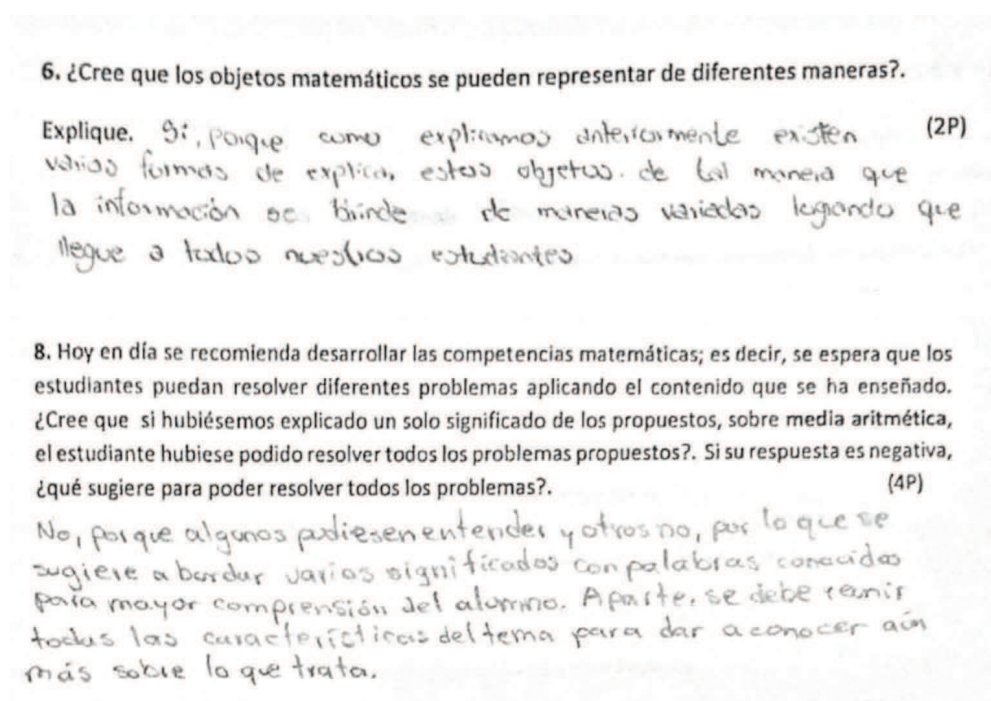 6. ¿Cree que los objetos matemáticos se pueden representar de diferentes maneras?.
Explique. Si, porque como explicamos anteriormente existen (2P)
varias formas de explicar estos objetos. de tal manera que
la información se brinde de maneras variadas logando que
llegue a todos nuestros estudiantes
8. Hoy en día se recomienda desarrollar las competencias matemáticas; es decir, se espera que los
estudiantes puedan resolver diferentes problemas aplicando el contenido que se ha enseñado.
¿Cree que si hubiésemos explicado un solo significado de los propuestos, sobre media aritmética,
el estudiante hubiese podido resolver todos los problemas propuestos?. Si su respuesta es negativa,
¿qué sugiere para poder resolver todos los problemas?. (4P)
No, porque algunos pudiesen entender y otros no, por lo que se
sugiere abordar varios significados con palabras conocidas
para mayor comprensión del alumno. Aparte, se debe reunir
todas las características del tema para dar a conocer aún
más sobre lo que trata.